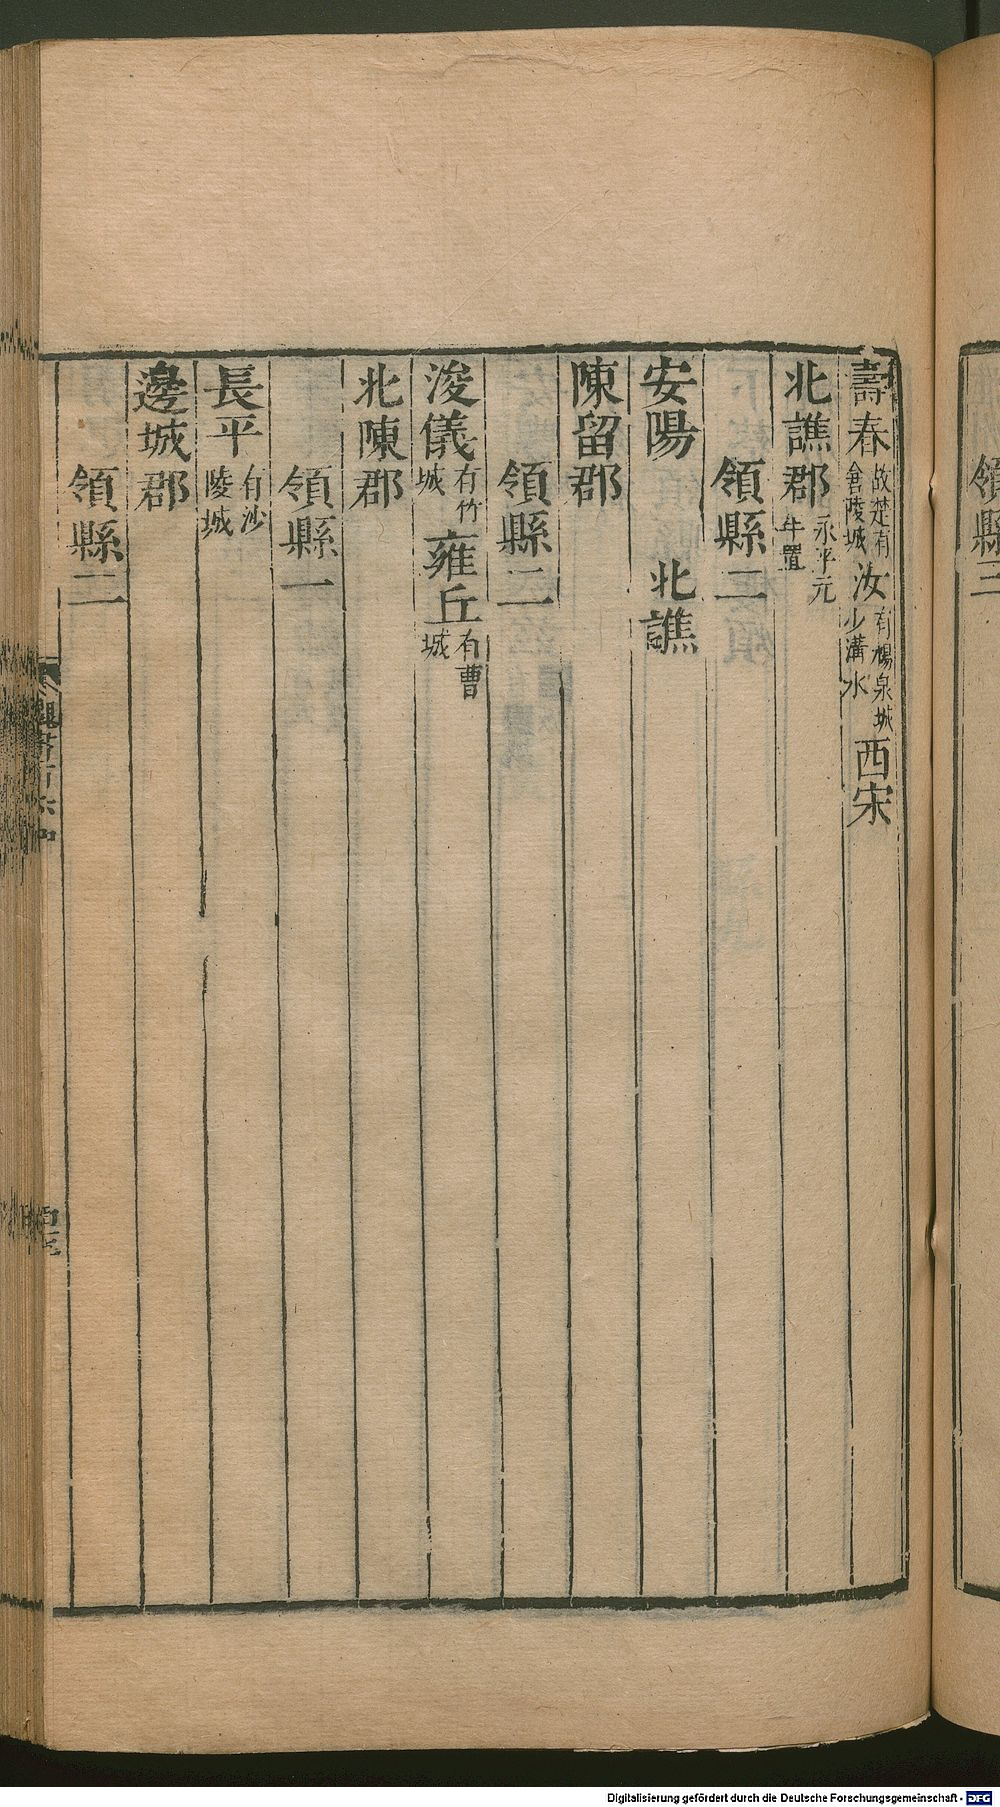 領縣三
壽春故楚有倉陵城汝有楊泉城少溝水西宋
北譙郡永平元年置
領縣二
安陽 北譙
陳留郡
領縣二
浚儀有竹城雍丘有曹城
北陳郡
領縣一
長平有沙陵城
邊城郡
領縣二
Digitalisierung gefördert durch die Deutsche Forschungsgemeinschaft - DFG